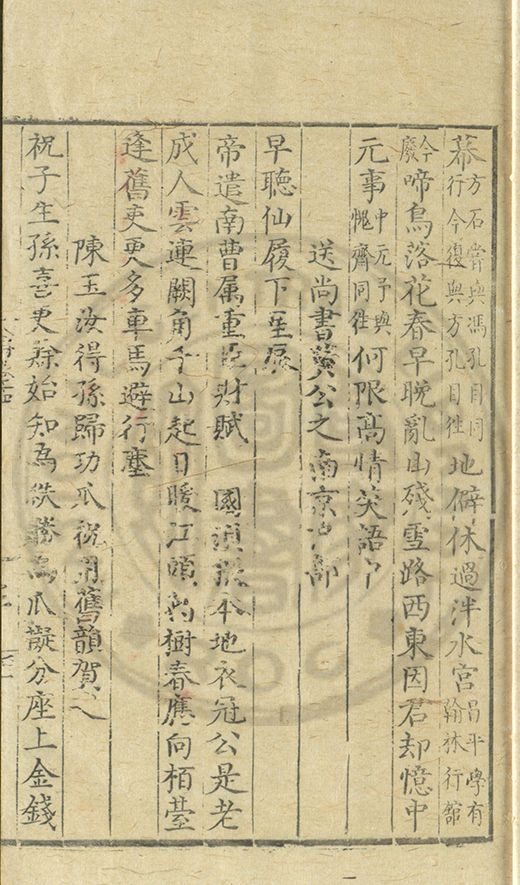 幕方石嘗與馮孔目同行今復與方孔目徃地僻休過泮水宫昌平學有翰林行館
今廢啼鳥落花春早晩亂山殘雪路西東因君却憶中
元事中元予與愧齊同徃何限髙情笑語中
送尚書黄公之南京户部
早聽仙履下星辰
帝遣南曹属重臣財賦　國須根本地衣冠公是老
成人雲連闕角千山起日暖江頭萬樹春應向栢臺
逢舊吏更多車馬避行塵
陳玉汝得孫歸功瓜祝用舊韻賀之
祝子生孫喜更餘始知為瓞勝為瓜擬分座上金錢